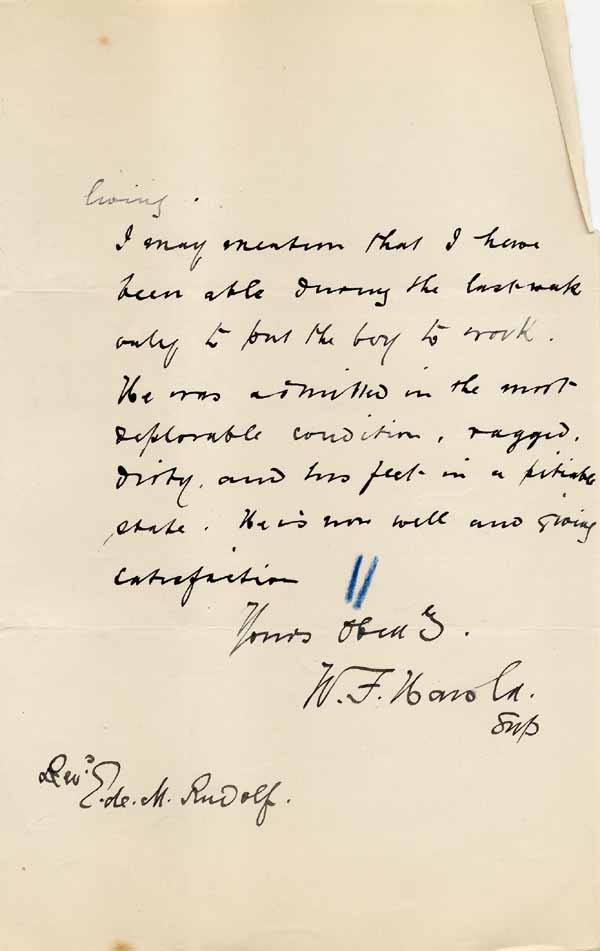 living.
I may mention that I have
been able during the last week
only to put the boy to work.
He was admitted in the most
deplorable condition, ragged,
dirty, and his feet in a pitiable
state. He is now well and giving
satisfaction
Yours Obedtly.
W. F. Harold.
Sup
Revd
E. de. M. Rudolf.